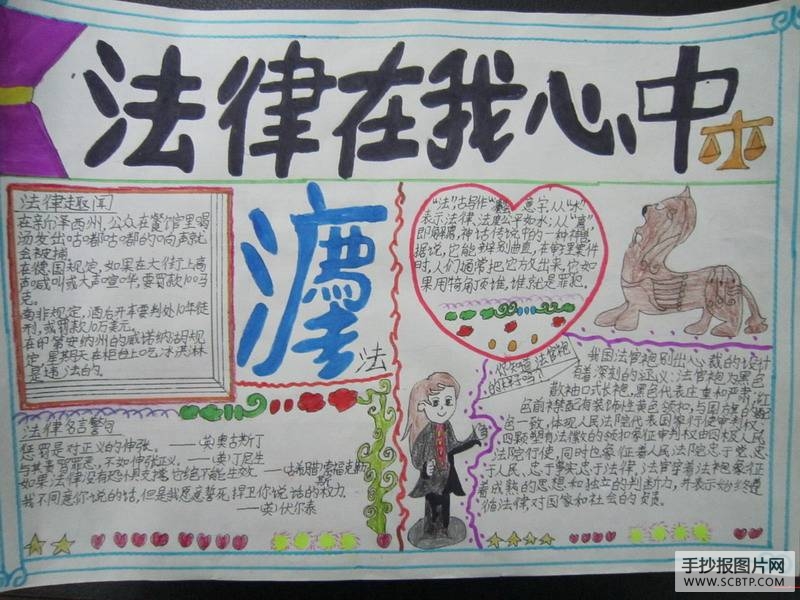 法律在我心中
法律趣闻
在新泽西州,公众在餐馆里喝
汤发出咕嘟咕嘟的响声就
会被捕
在德国规定,如果在大街上高
声喊叫或大声喧哗要罚款100马
克。
南非规定,酒后开车要判处10年徒
刑,或罚款10万美元。
在印第安纳州的威诺纳湖规
定,星期天在柜台上吃冰淇淋
是违法的。
灋
法
法律名言警句
惩罚是对正义的伸张。——(英)奥古斯丁
与其责骂罪恶,不如伸张正义。——(英)丁尼生
如果法律没有恐惧支撑,它绝不能生效。——(古希腊)索福克勒
斯
我不同意你说的话,但是我愿意誓死捍卫你说话的权力。
——(英)伏尔泰
“法”,古写作“灋”,会意字,从“水”
表示法律、法度公平如水;从“廌”
即解廌,神话传说中的一种神兽,
据说,它能辨别曲直,在审理案件
时,人们通常把它放出来,它如
果用犄角顶谁,谁就是罪犯。
你知道法官袍
的来历吗?
我国法官袍别出心裁的设计
有着深刻的涵义:法官袍为黑色
散袖口式长袍,黑色代表庄重和严肃;红
色前襟配有装饰性黄色领扣,与国旗的颜
色一致,体现人民法院代表国家行使审判权;
四颗塑有法徽的领扣象征审判权由四级人民
法院行使,同时也象征着人民法院忠于党、忠
于人民、忠于事实、忠于法律;法官穿着法袍象征
着成熟的思想和独立的判断力,并表示始终遵
循法律,对国家和社会的负责。
手抄报图片网
WWW.SCBTP.COM